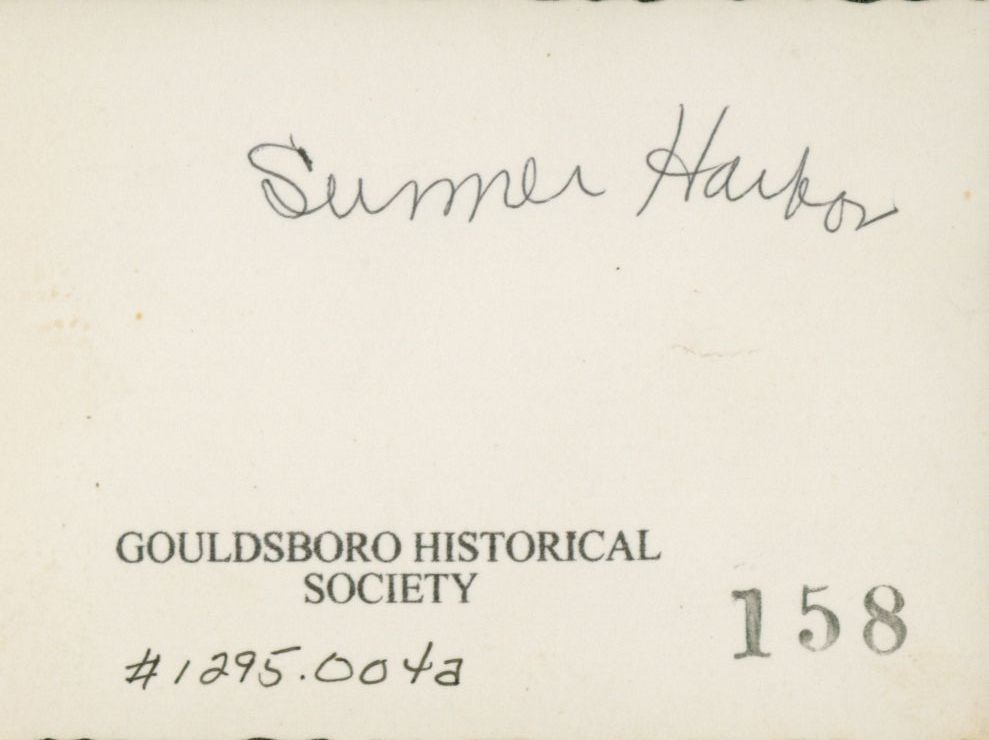 Summer Harbor
GOULDSBORO HISTORICAL
SOCIETY
158
#1295.004a